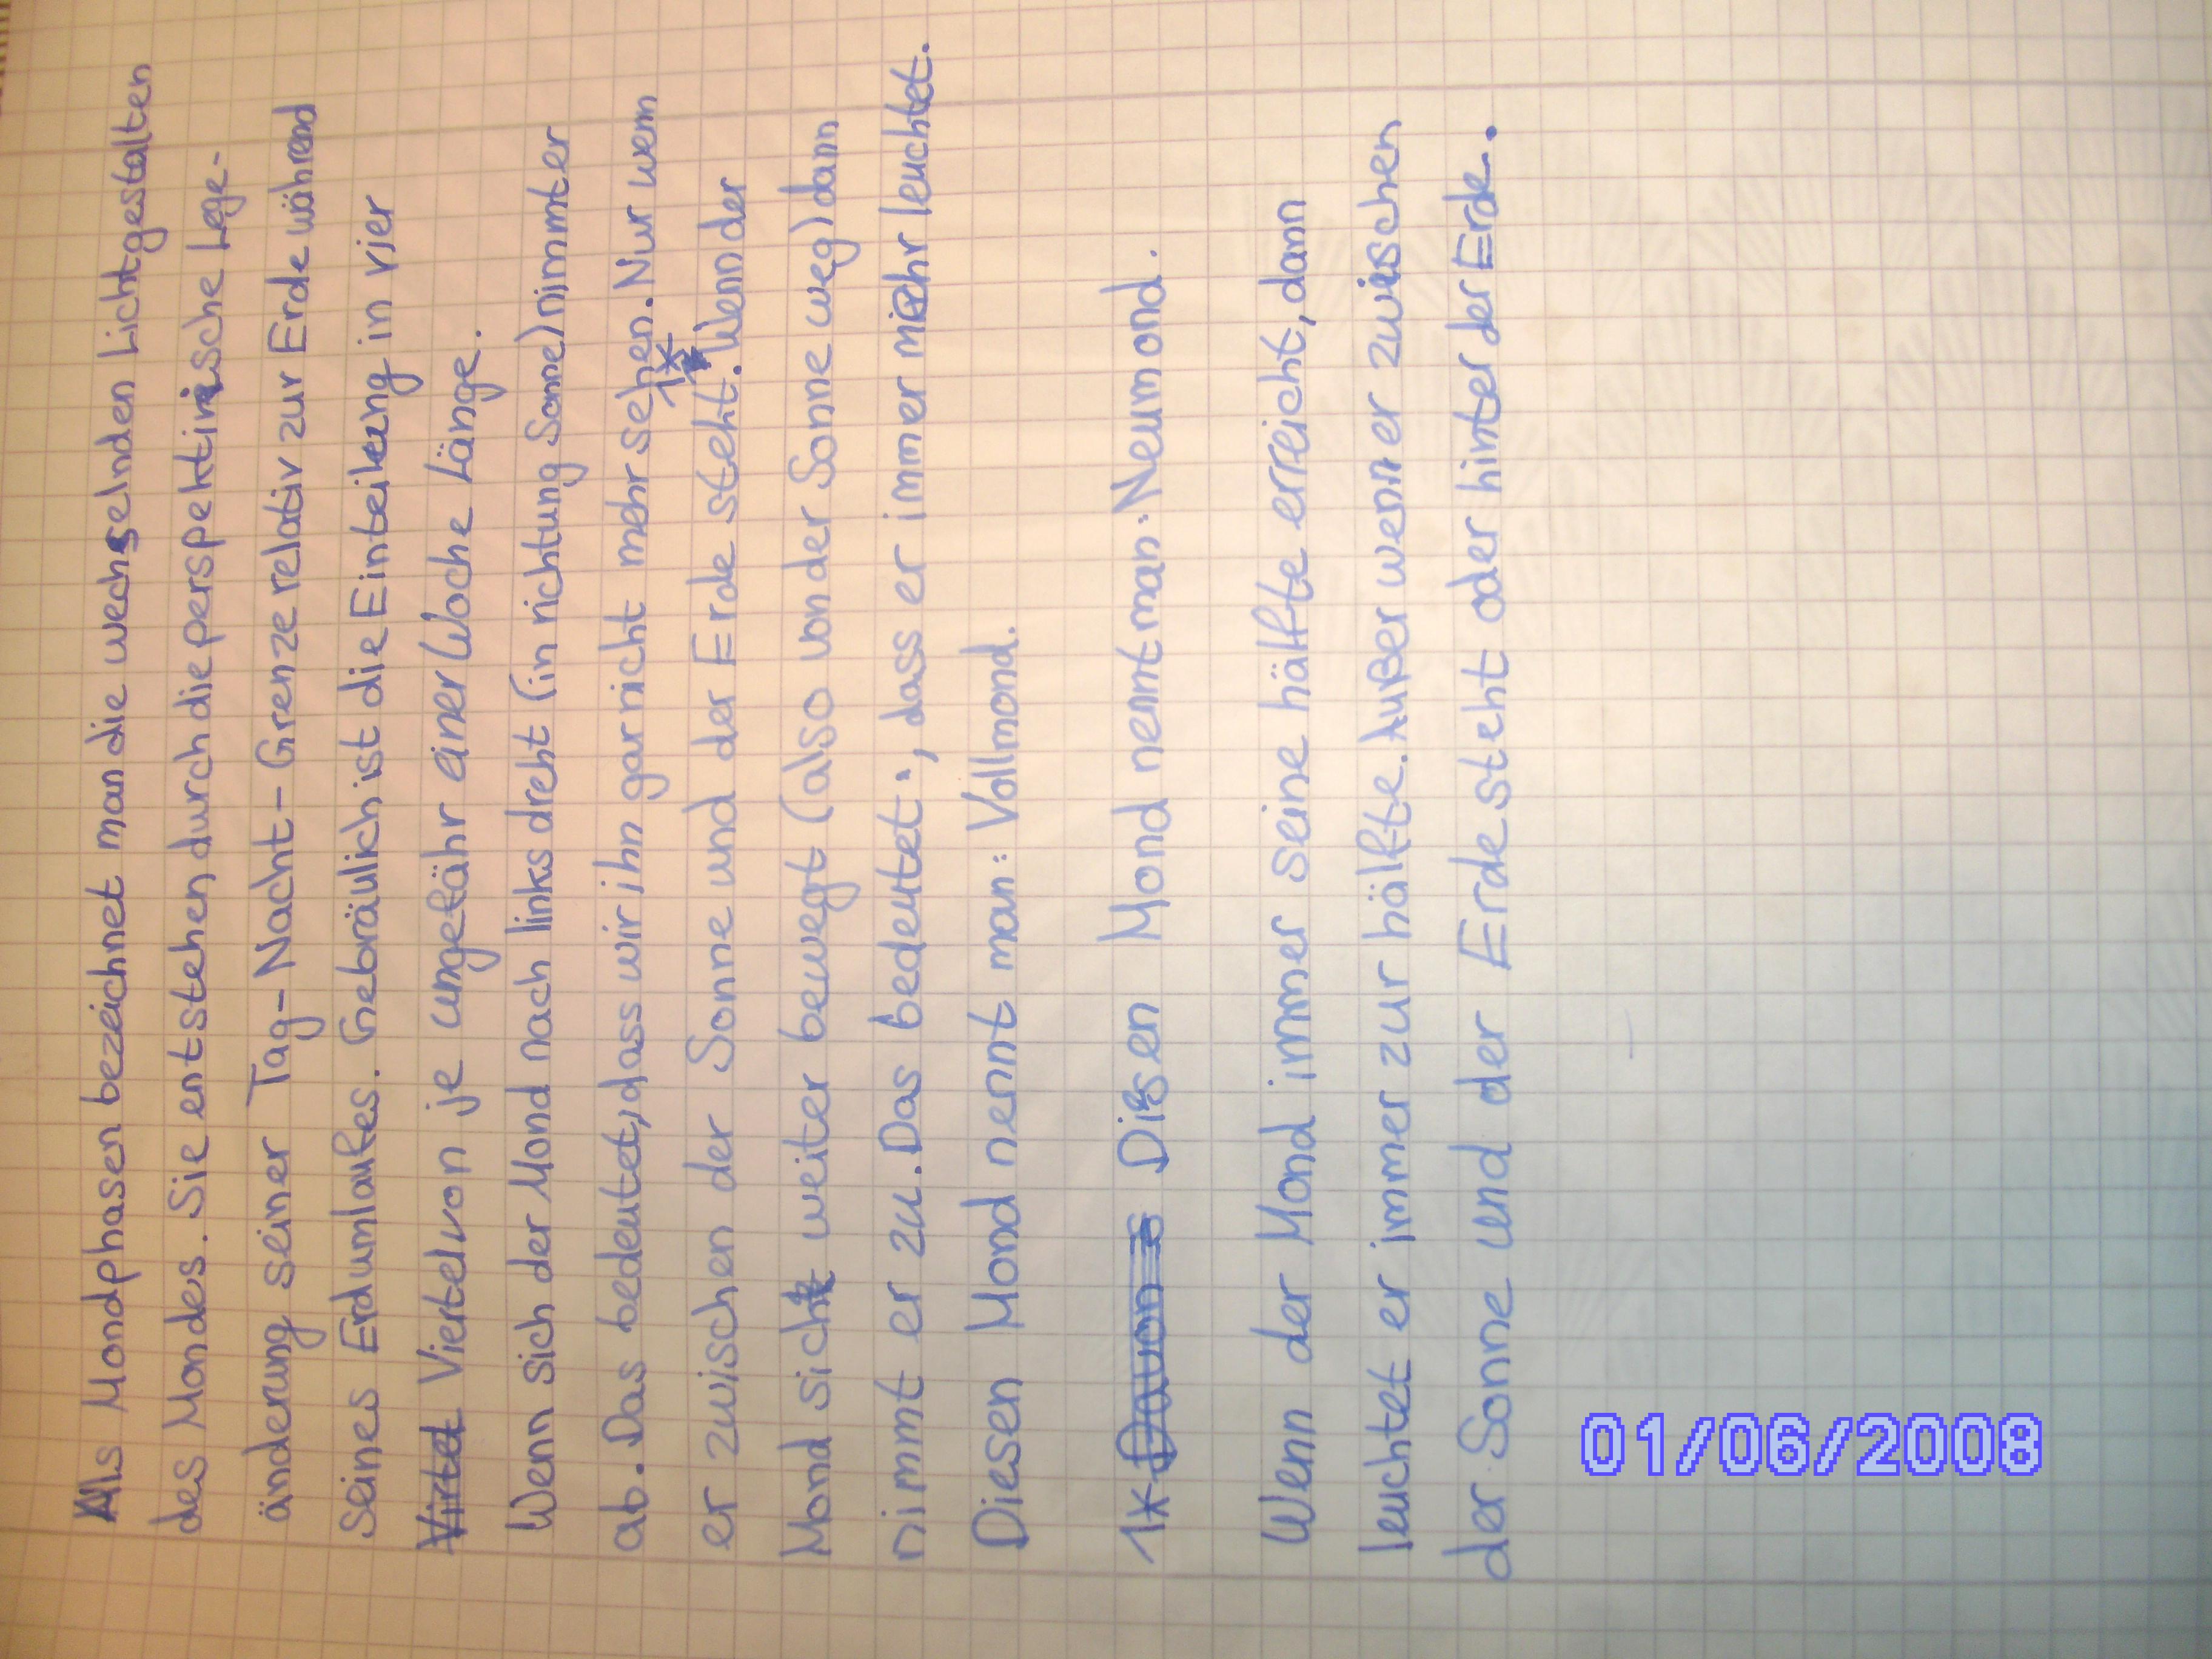 Als Mondphasen bezeichnet man die wechselnden Lichtgestalten
des Mondes. Sie entstehen durch die perspektinische Lege-
änderung seiner Tag-Nacht-Grenze relativ zur Erde während
seines Erdumlaufes. Gebräulich ist die Einteilung in vier
Virtel Viertel von je umgefähr einer Woche Länge.
Wenn sich der Mond nach links dreht (in richtung Sonne) nimmt er
ab. Das bedeutet, dass wir ihn gar nicht mehr sehen. Nur wenn
er zwischen der Sonne und der Erde steht. 1* Wenn der
Mond sich weiter bewegt (also von der Sonne weg) dann
nimmt er zu. Das bedeutet:, dass er immer mehr leuchtet.
Diesen Mond nennt man: Vollmond.
1* Davon Diesen Mond nennt man: Neumond.
Wenn der Mond immer seine hälfte erreicht, dann
leuchtet er immer zur hälfte. Außer wenn er zwischen
der Sonne und der Erde steht oder hinter der Erde.
01/06/2008